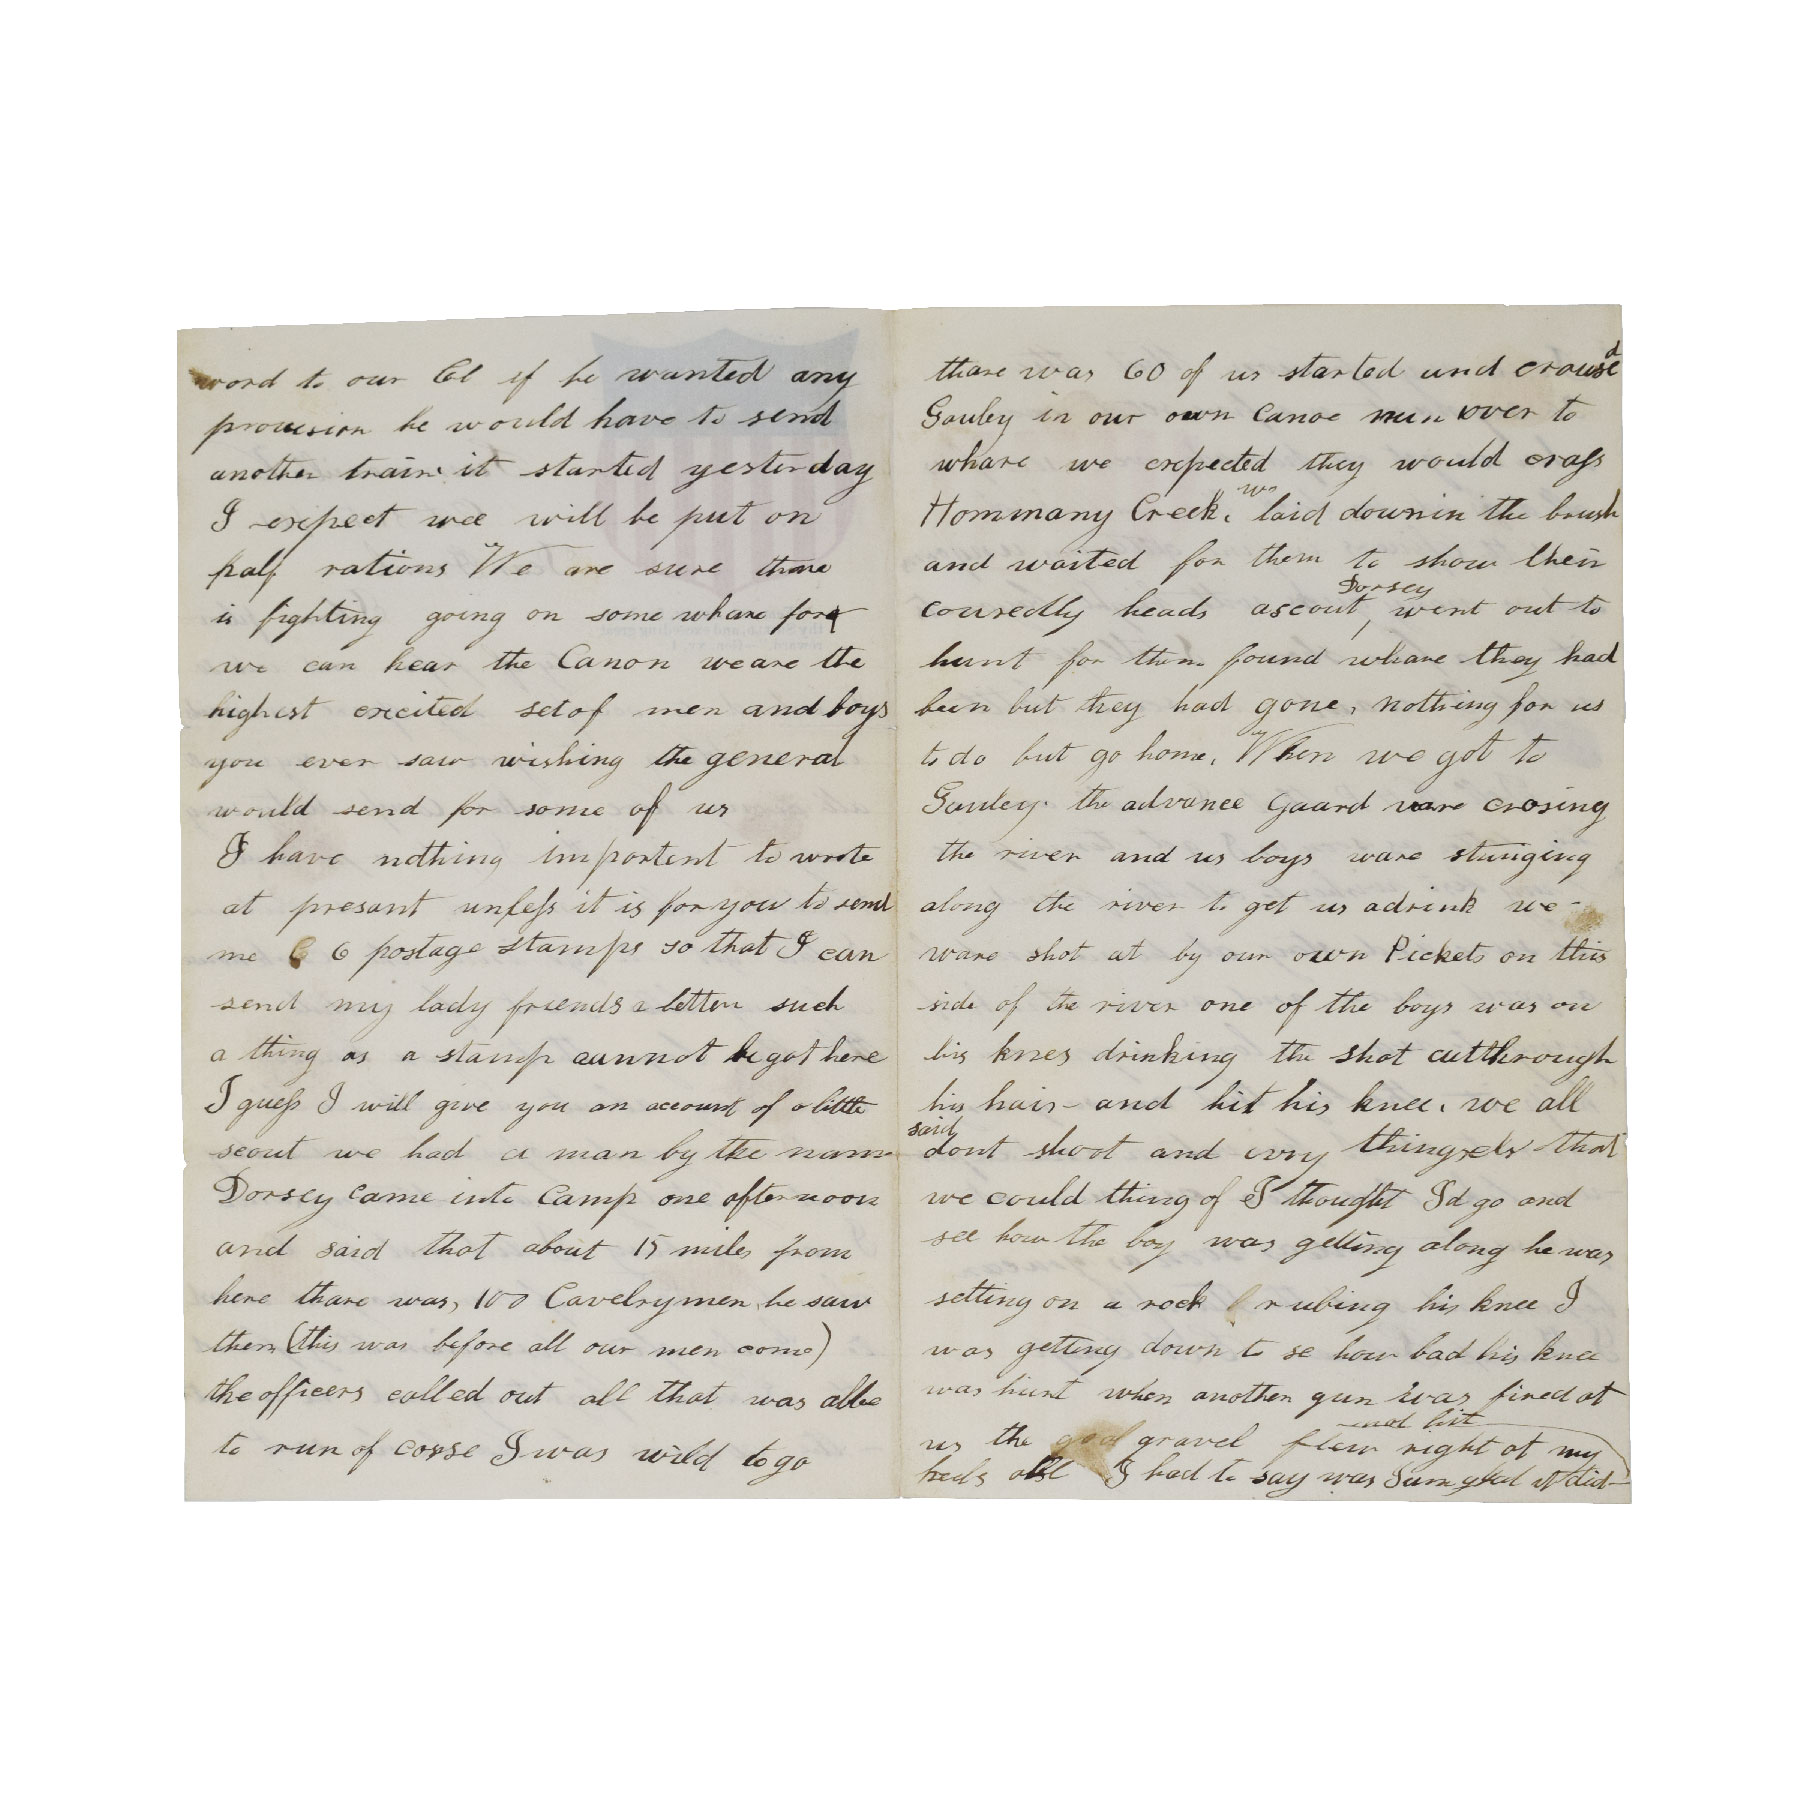 word to our Col if he wanted any
provision he would have to send
another train it started yesterday
I expect wee will be put on
half rations We are sure thare
is fighting going on some whare for
we can hear the Canon we are the
highest excited set of men and boys
you ever saw wishing the general
would send for some of us
I have nothing importent to wrote
at presant unless it is for you to send
me 6 postage stamps so that I can
send my lady friends a letter such
a thing as a stamp cannot be got here
I guess I will give you an account of a little
scout we had a man by the name
Dorsey came into Camp one afternoon
and said that about 15 miles from
here thare was, 100 Cavelrymen, he saw
them (this was before all our men come)
the officers called out all that was able
to run of corse I was wild to go
thare was 60 of us started and crousd
Gauley in our own Canoe run over to
whare we expected they would crass
Hommany Creek. we laid down in the brush
and waited for them to show their
couredly heads a scout, Dorsey went out to
hunt for them found whare they had
been but they had gone, nothing for us
to do but go home. When we got to
Gauley. the advance Gaard ware crosing
the river and us boys ware stringing
along the river to get us a drink we
ware shot at by our own Pickets on this
side of the river one of the boys was on
his knes drinking the shot cut through
his hair and hit his knee. we all
said dont shoot and evry thing els that
we could thing of I thought I'd go and
see how the boy was getting along he was
setting on a rock rubing his knee I
was getting down to se how bad his knee
was hurt when another gun was fired at
us the gravel flew right at my
heels all I had to say was I am glad it did not hit